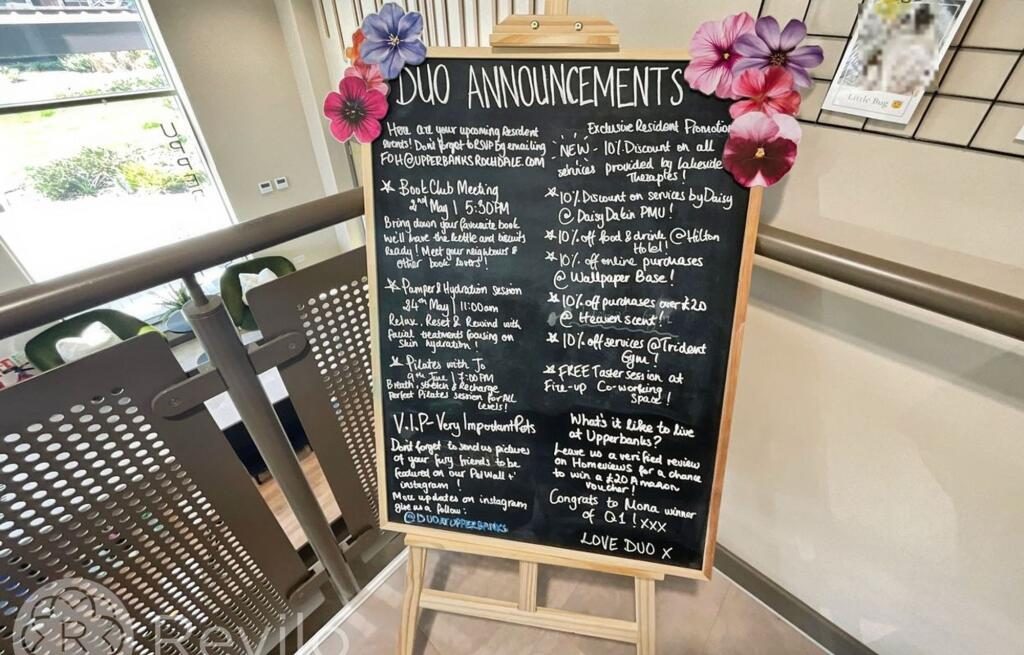 DUO ANNOUNCEMENTS
Here are your upcoming Resident
events! Don't forget to RSVP by emailing
FOH@UPPERBANKSROCHDALE.COM
Book Club Meeting
2nd May | 5:30PM
Bring down your favourite book
we'll have the kettle and biscuits
Ready! Meet your neighbours &
other book lovers!
Pamper & Hydration session
24th May | 11:00am
Relax, Reset & Rewind with
facial treatments focusing on
skin hydration!
Pilates with Jo
9th June | 7:00PM
Breath, stretch & Recharge
Perfect Pilates session for ALL
levels!
V.I.P - Very Important Pets
Don't forget to send us pictures
of your fury friends to be
featured on our Pet Wall +
instagram!
More updates on instagram
give us a follow:
@DUOATUPPERBANKS
Exclusive Resident Promotion
-NEW- 10% Discount on all
services provided by Lakeside
Therapies!
10% Discount on services by Daisy
@ Daisy Dakin PMU!
10% off food & drink @ Hilton
Hotel!
10% off online purchases
@ Wallpaper Base!
10% off purchases over £20
@ Heaven scent!
10% off services @ Trident
Gym!
FREE Taster session at
Fire-up Co-working
Space!
What's it like to live
at Upperbanks?
Leave us a verified review
on Homeviews for a chance
to win a £20 Amazon
voucher!
Congrats to Mona winner
of Q1! xxx
LOVE DUO X
Little Bug
UPPER
R
Revilo